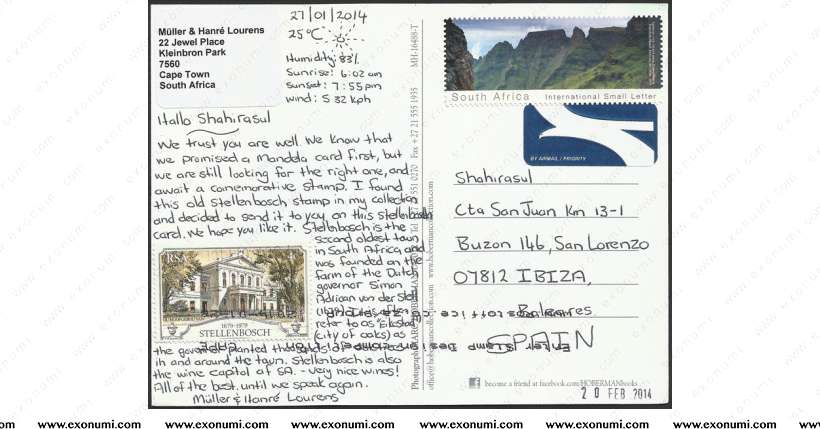 27/01/2014
25°C
Humidity: 83%
Sunrise: 6:02 am
Sunset: 7:55 pm
Wind: S 32 kph
Müller & Hanré Lourens
22 Jewel Place
Kleinbron Park
7560
Cape Town
South Africa
Hallo Shahirasul
We trust you are well. We know that
we promised a Mandela card first, but
we are still looking for the right one, and
await a comemorative stamp. I found
this old Stellenbosch stamp in my collection
and decided to send it to you on this Stellenbosch
card. We hope you like it. Stellenbosch is the
second oldest town
in South Africa, and
was founded on the
farm of the Dutch
governor Simon
Adriaan von der Stel
often
refer to as "Eikestad"
(city of oaks) as
the governor planted
in and around the town. Stellenbosch is also
the wine capital of SA. - very nice wines!
All of the best, until we speak again.
Müller & Hanré Lourens
RSA
1679-1979
STELLENBOSCH
MH-16488-T
Fax +27 21 555 1935
www.hobermancollection.com
South Africa International Small Letter
BY AIRMAIL / PRIORITY
Shahirasul
Cta San Juan Km 13-1
Buzon 146, San Lorenzo
07812 IBIZA,
Baleares
SPAIN
become a friend at facebook.com/HOBERMANbooks
20 FEB 2014
www.exonumi.com www.exonumi.com www.exonumi.com www.exonumi.com www.exonumi.com